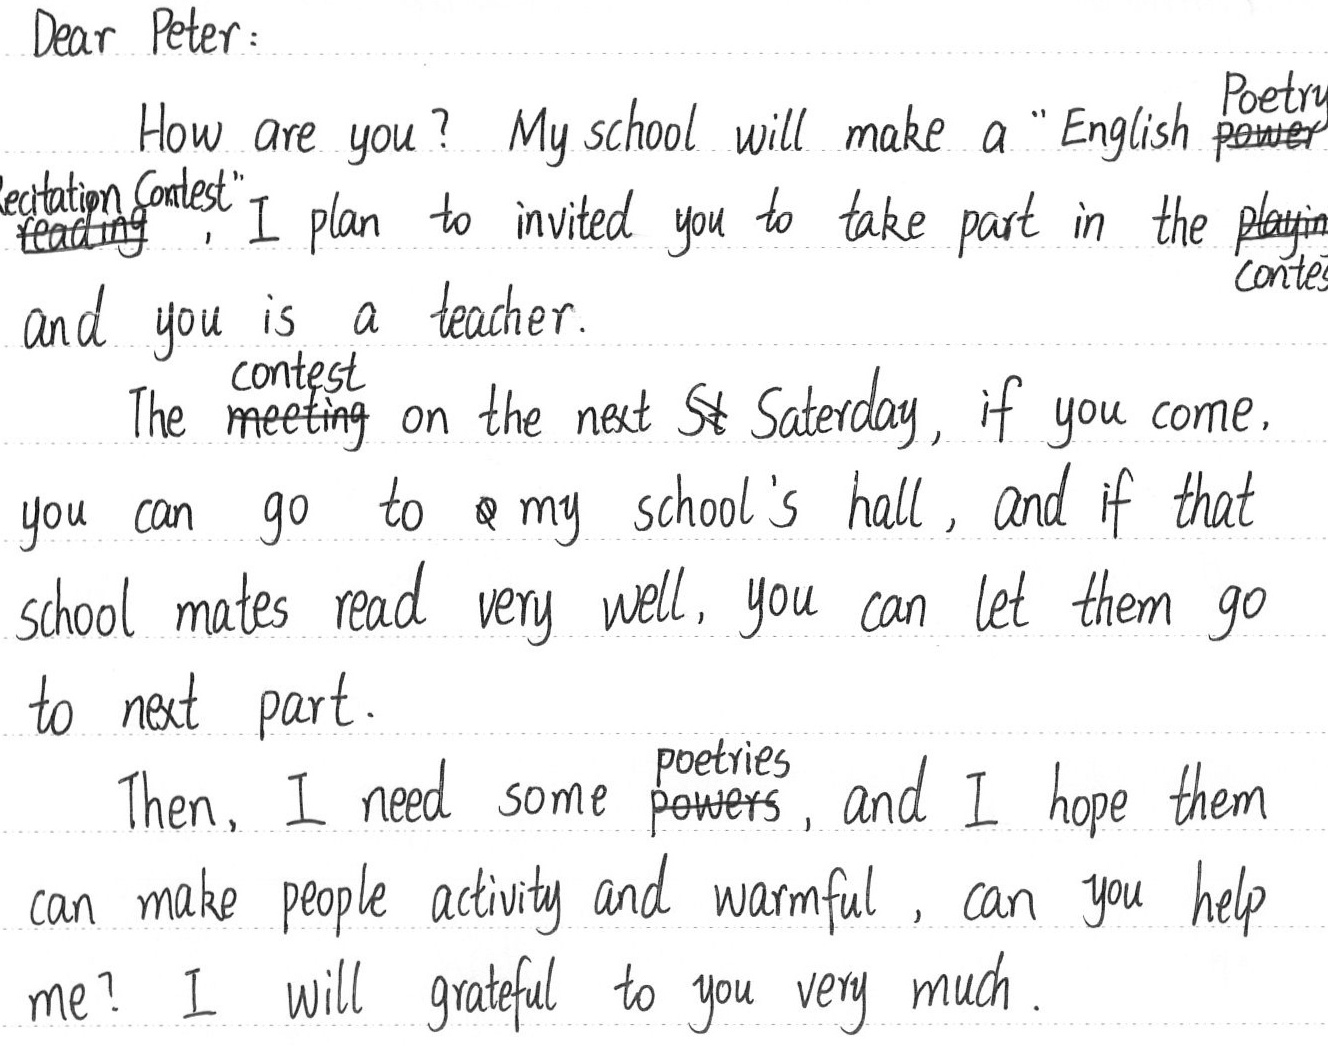 Dear Peter:
How are you? My school will make a "English Poetry
Recitation Contest", I plan to invited you to take part in the contest
and you is a teacher.
The contest on the next Saterday, if you come,
you can go to my school's hall, and if that
school mates read very well, you can let them go
to next part.
Then, I need some poetries, and I hope them
can make people activity and warmful, can you help
me? I will grateful to you very much.